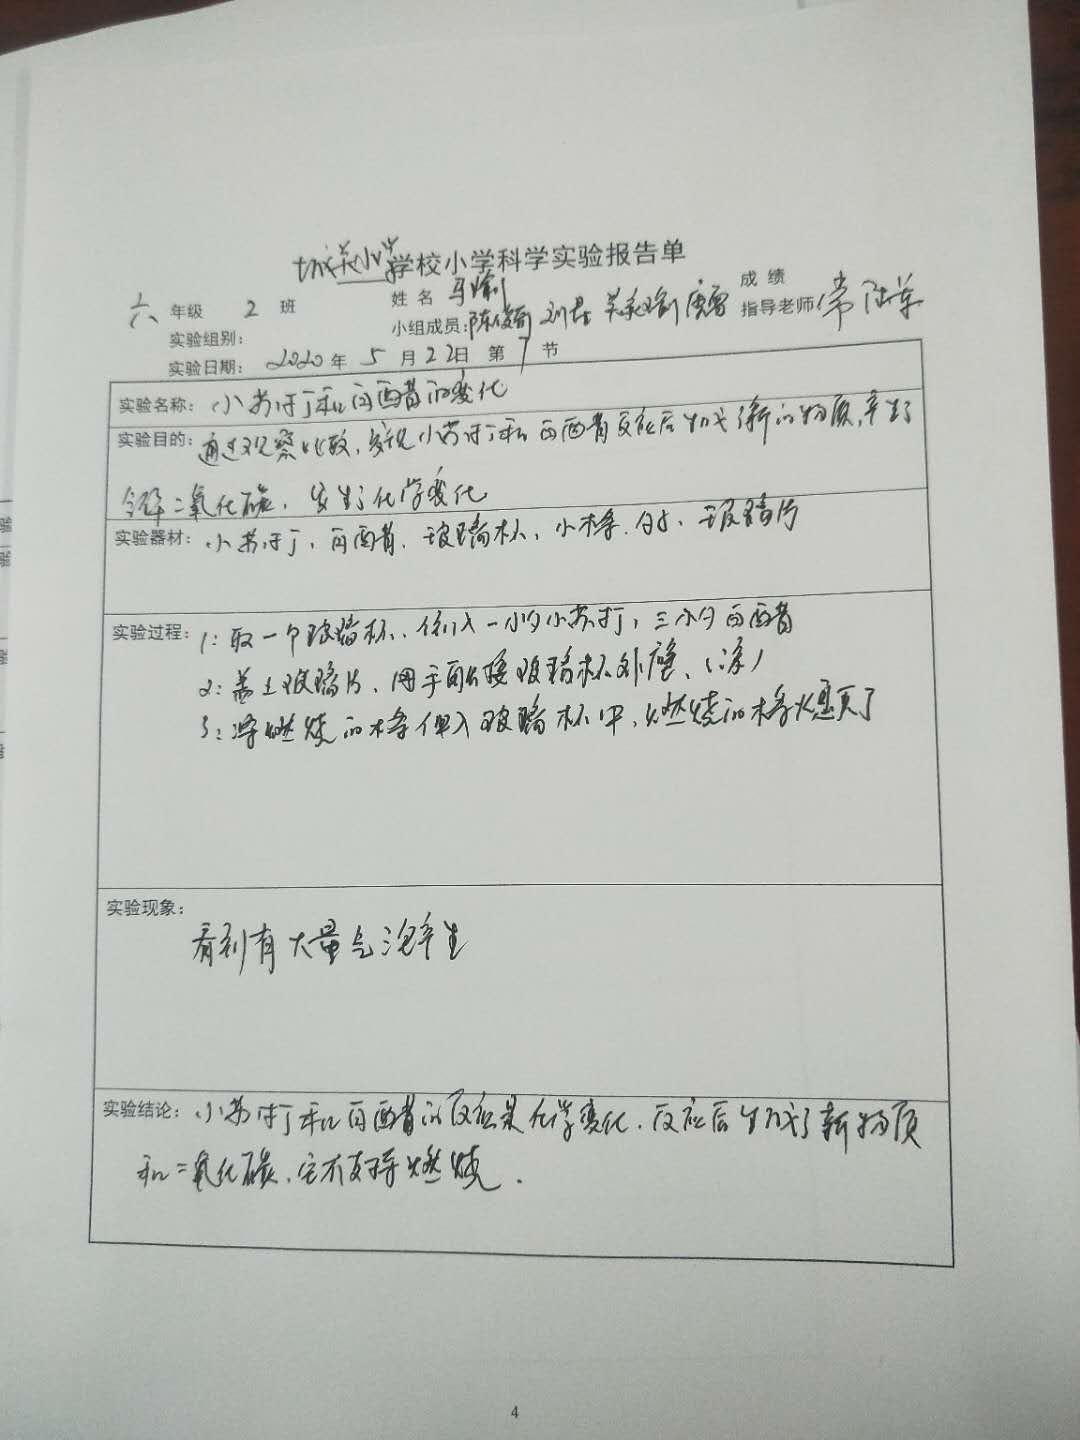 城关小学学校小学科学实验报告单
六年级 2 班 姓名 马 成绩
实验组别: 小组成员: 陈俊 指导老师 常
实验日期: 2020年 5月22日 第 节
实验名称: 小苏打和白醋的变化
实验目的: 通过观察比较,发现小苏打和白醋反应后生成了新的物质,产生了
二氧化碳,发生了化学变化
实验器材: 小苏打、白醋、玻璃杯、小棒、勺、玻璃片
实验过程: 1: 取一个玻璃杯、倒入一小勺小苏打,三小勺白醋
2: 盖上玻璃片、用手触摸玻璃杯外壁、(凉)
3: 将燃烧的棒伸入玻璃杯中,燃烧的棒熄灭了
实验现象:
看到有大量气泡产生
实验结论: 小苏打和白醋的反应是化学变化.反应后生成了新物质
和二氧化碳,它不支持燃烧.
4